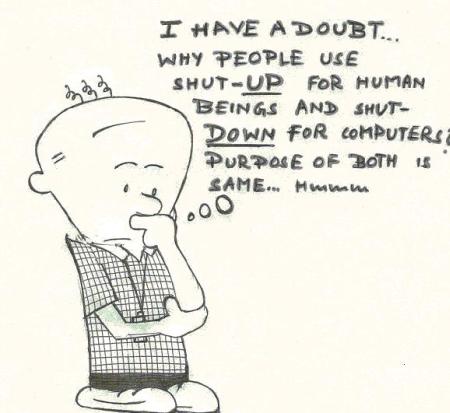 I HAVE A DOUBT...
WHY PEOPLE USE
SHUT-UP FOR HUMAN
BEINGS AND SHUT-
DOWN FOR COMPUTERS?
PURPOSE OF BOTH IS
SAME... Hmmmm